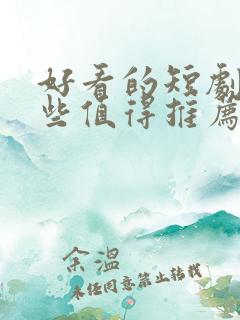 好看的短劇
些值得推薦
余溫
未经同意禁止转载